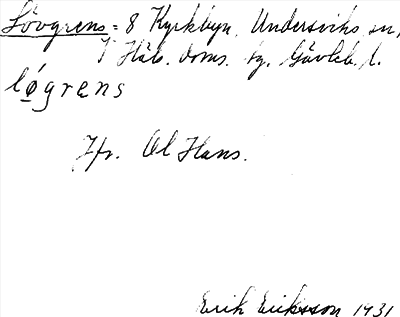 Lövgrens = 8 Kyrkbyn, Undersviks sn,
V Häls. doms. fg. Gävleb. l.
lǿgrens
Jfr. Ol Hans.
Erik Eriksson 1931